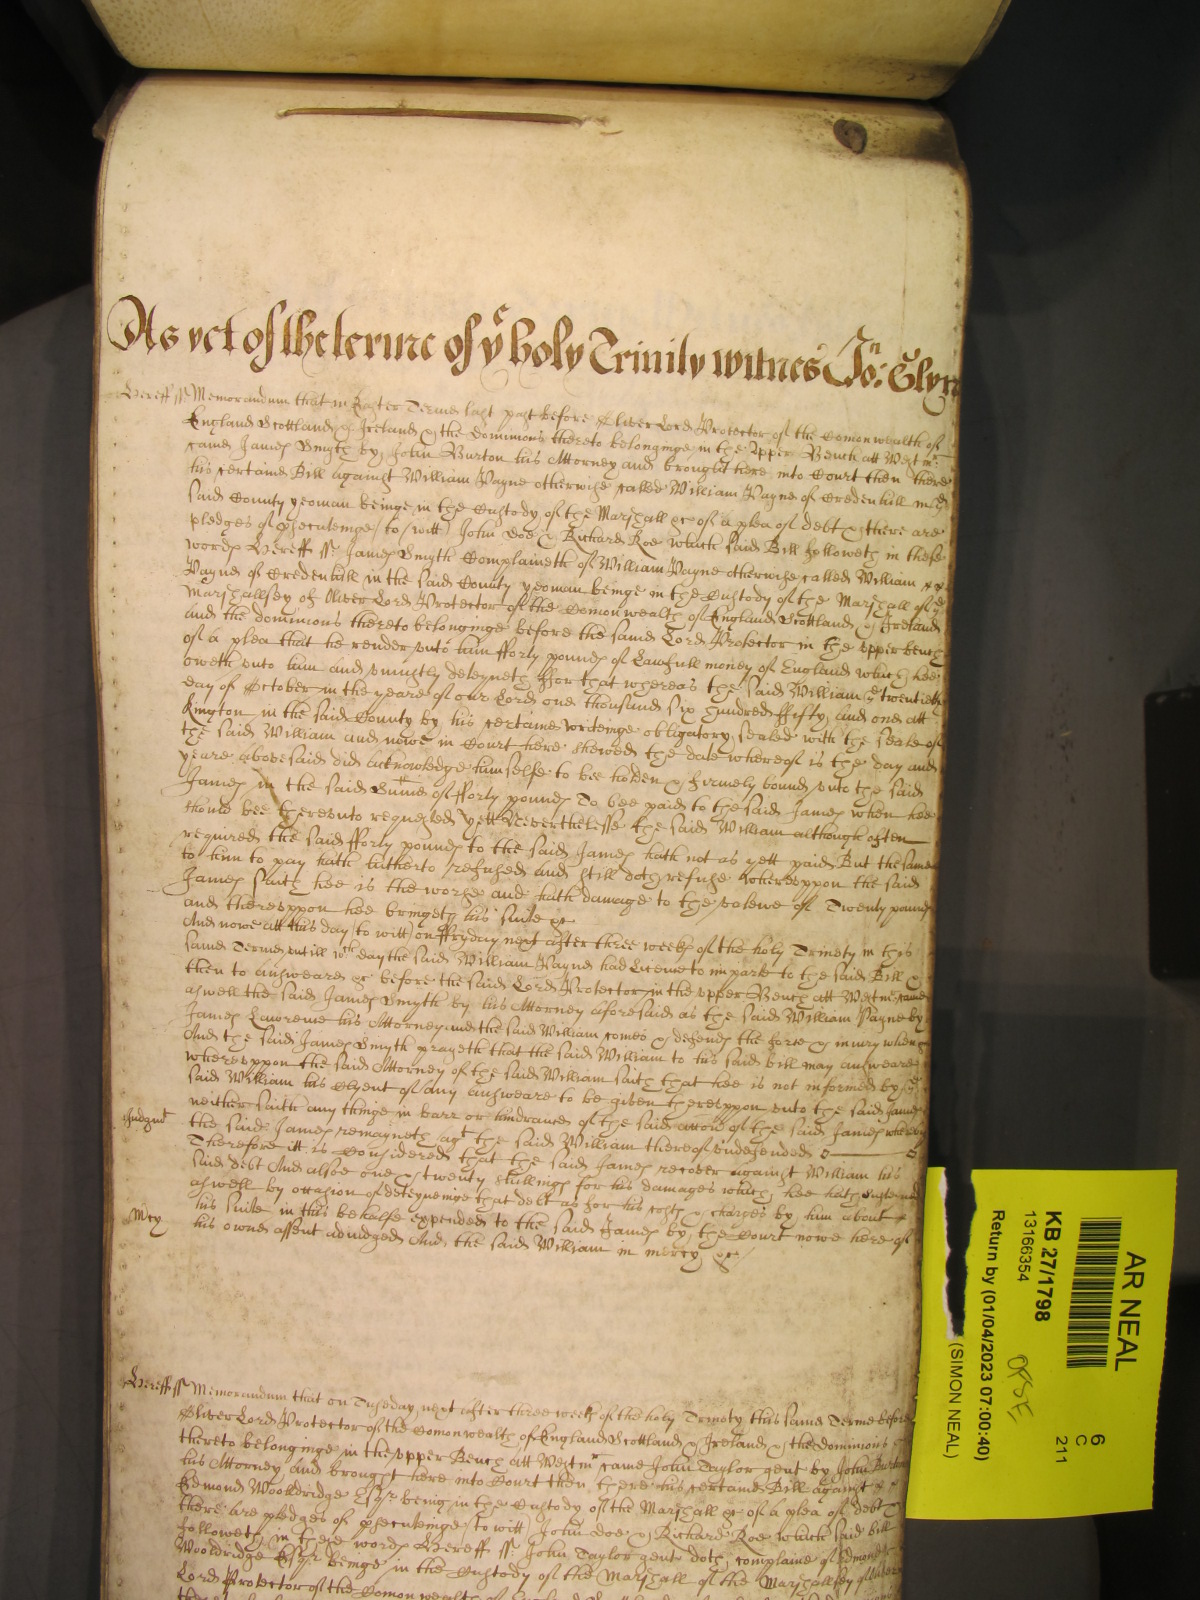 As yet of the terme of ye holy Trinity witnes Jon: Glyn
Hereff ss Memorandum that in Easter Terme last past before Oliver Lord Protector of the Comonwealth of
England Scottland & Ireland & the dominions thereto belonginge in the Upper Bench att Westmr
came James Smyth by John Burton his Attorney and brought here into Court then there
his certaine Bill against William Payne otherwise called William Payne of Credenhill in ye
said County yeoman beinge in the Custody of the Marshall &c of a plea of debt & there are
pledges of prsecuteinge to witt John Doe & Richard Roe which said Bill followeth in these
words Hereff ss James Smyth Complaineth of William Payne otherwise called William
Payne of Credenhill in the said County yeoman beinge in the Custody of the Marshall of ye
Marshallsey of Oliver Lord Protector of the Comonwealth of England Scottland & Ireland
and the dominions thereto belonginge before the same Lord Protector in the upper bench
of a plea that he render unto him fforty pounds of Lawfull money of England which hee
oweth unto him and uniustly deteyneth ffor that whereas the said William ye twentieth
day of October in the yeare of our Lord one thousand six hundred ffifty and one att
Kington in the said County by his certaine writeinge obligatory sealed with the seale of
the said William and nowe in Court here shewed the date whereof is the day and
yeare abovesaid did acknowledge himselfe to bee holden & firmely bound unto the said
James in the said Sume of fforty pounds To bee paid to the said James when hee
should bee thereunto requested Yett Neverthelesse the said William although often
required the said fforty pounds to the said James hath not as yett paid But the same
to him to pay hath hitherto refused and still doth refuse Whereuppon the said
James saith hee is the worse and hath damage to the valewe of Twenty pounds
and thereuppon hee bringeth his suite &c
And nowe att this day (to witt) on ffryday next after three weeks of the holy Trinity in this
same Terme untill wch day the said William Payne had Licence to imparle to the said Bill &
then to answeare &c before the said Lord Protector in the upper Bench att Westmr came
aswell the said James Smyth by his Attorney aforesaid as the said William Payne by
James Lawrence his Attorney and the said William comes & defends the force & iniury when &c
And the said James Smyth prayeth that the said William to his said bill may answeare
whereuppon the said Attorney of the said William saith that hee is not informed by ye
said William his Clyent of any answeare to be given thereuppon unto the said James
neither saith any thinge in barr or hindrance of the said accon of the said James whereby
Judgmt the said James remayneth agt the said William thereof undefended
Therefore itt is Considered that the said James recover against William his
said debt And alsoe one & twenty shillings for his damages which hee hath susteyned
aswell by occasion of deteyneinge that debt as for his costs & charges by him about
Mcy his suite in this behalfe expended to the said James by the Court nowe here of
his owne assent adiudged And the said William in mercy &c
Hereff ss Memorandum that on Tuseday next after three weeks of the holy Trinity this same Terme before
Oliver Lord Protector of the Comonwealth of England Scottland & Ireland & the dominions
thereto belonginge in the upper Bench att Westmr came John Taylor gent by John Burton
his Attorney and brought here into Court then there his certaine Bill against
Edmond Wooldridge Esqr being in the Custody of the Marshall &c of a plea of debt
there are pledges of prsecuteinge (to witt) John doe & Richard Roe which said bill
followeth in these words Hereff ss John Taylor gent doth complaine of Edmond
Wooldridge Esqr beinge in the Custody of the Marshall of the Marshallsey of Oliver
Lord Protector of the Comonwealth of England
AR NEAL
6
C
211
KB 27/1798
13166354
Return by (01/04/2023 07:00:40)
(SIMON NEAL)